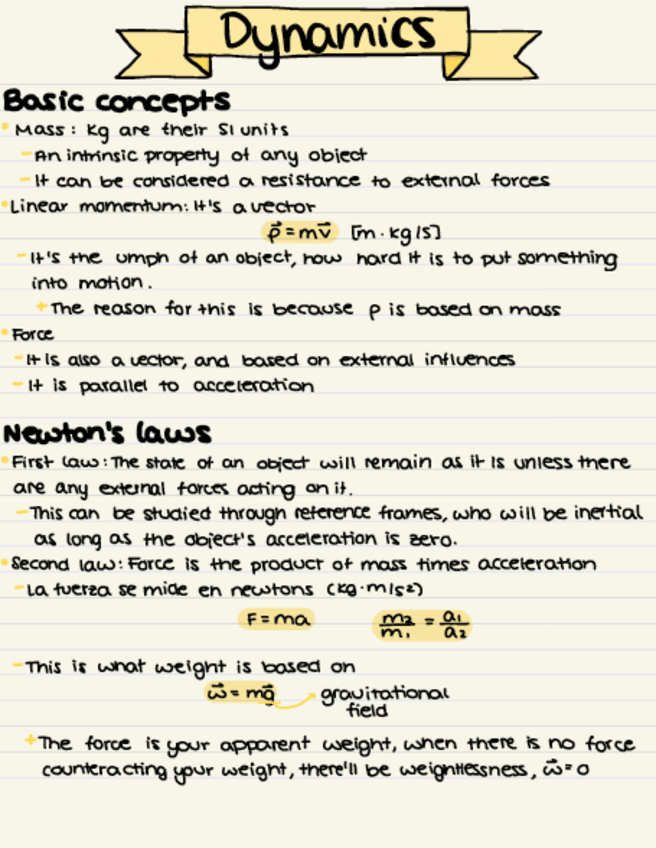 Dynamics
Basic concepts
• Mass: Kg are their SI units
- An intrinsic property of any object
- It can be considered a resistance to external forces
• Linear momentum: It's a vector
p⃗ = mv⃗ [m · kg/s]
- It's the umph of an object, how hard it is to put something
into motion.
+ The reason for this is because p is based on mass
• Force
- It is also a vector, and based on external influences
- It is parallel to acceleration
Newton's laws
• First law: The state of an object will remain as it is unless there
are any external forces acting on it.
- This can be studied through reference frames, who will be inertial
as long as the object's acceleration is zero.
• Second law: Force is the product of mass times acceleration
- La fuerza se mide en newtons (kg·m/s²)
F = ma m₂/m₁ = a₁/a₂
- This is what weight is based on
w⃗ = mg⃗ → gravitational
field
+ The force is your apparent weight, when there is no force
counteracting your weight, there'll be weightlessness, w⃗ = 0